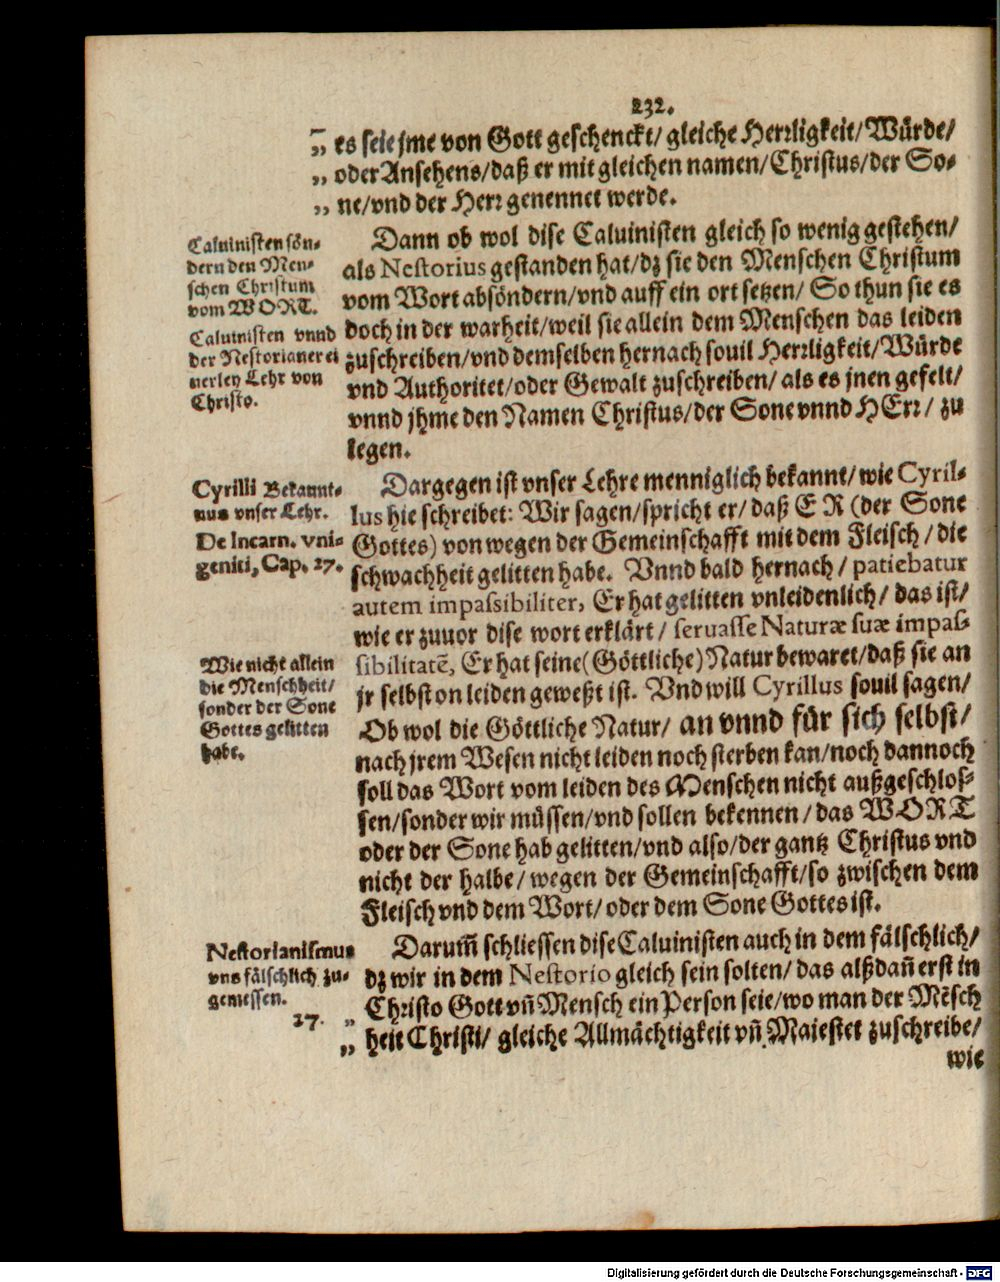 232.
„ es seie jme von Gott geschenckt/ gleiche Herrligkeit/ Würde/
„ oder Ansehens/ daß er mit gleichen namen/ Christus/ der So-
„ ne/ vnd der Herr genennet werde.
Dann ob wol dise Caluinisten gleich so wenig gestehen/
als Nestorius gestanden hat/ dz sie den Menschen Christum
vom Wort absöndern/ vnd auff ein ort setzen/ So thun sie es
doch in der warheit/ weil sie allein dem Menschen das leiden
zuschreiben/ vnd demselben hernach souil Herrligkeit/ Würde
vnd Authoritet/ oder Gewalt zuschreiben/ als es jnen gefelt/
vnnd jhme den Namen Christus/ der Sone vnnd HErr/ zu
legen.
Caluinisten sön-
dern den Men-
schen Christum
vom WORT.
Caluinisten vnnd
der Nestorianer ei
nerley Lehr von
Christo.
Dargegen ist vnser Lehre menniglich bekannt/ wie Cyril-
lus hie schreibet: Wir sagen/ spricht er/ daß ER (der Sone
Gottes) von wegen der Gemeinschafft mit dem Fleisch/ die
schwachheit gelitten habe. Vnnd bald hernach/ patiebatur
autem impassibiliter, Er hat gelitten vnleidenlich/ das ist/
wie er zuuor dise wort erklärt/ seruasse Naturæ suæ impas-
sibilitatē, Er hat seine (Göttliche) Natur bewaret/ daß sie an
jr selbst on leiden geweßt ist. Vnd will Cyrillus souil sagen/
Ob wol die Göttliche Natur/ an vnnd für sich selbst/
nach jrem Wesen nicht leiden noch sterben kan/ noch dannoch
soll das Wort vom leiden des Menschen nicht außgeschlos-
sen/ sonder wir müssen/ vnd sollen bekennen/ das WORT
oder der Sone hab gelitten/ vnd also/ der gantz Christus vnd
nicht der halbe/ wegen der Gemeinschafft/ so zwischen dem
Fleisch vnd dem Wort/ oder dem Sone Gottes ist.
Cyrilli Bekannt-
nus vnser Lehr.
De Incarn. vni-
geniti, Cap. 27.
Wie nicht allein
die Menschheit/
sonder der Sone
Gottes gelitten
habe.
Darum̃ schliessen dise Caluinisten auch in dem fälschlich/
dz wir in dem Nestorio gleich sein solten/ das alßdañ erst in
„ Christo Gott vñ Mensch ein Person seie/ wo man der Mẽsch
„ heit Christi/ gleiche Allmächtigkeit vñ Maiestet zuschreibe/
Nestorianismus
vns fälschlich zu-
gemessen.
27.
wie
Digitalisierung gefördert durch die Deutsche Forschungsgemeinschaft - DFG